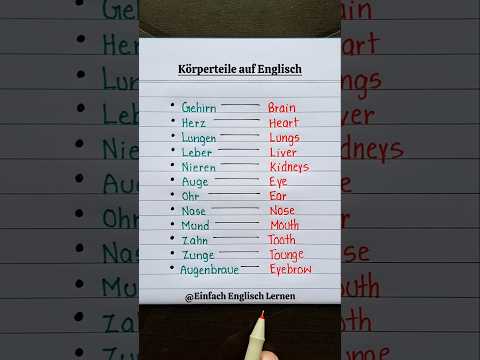 Körperteile auf Englisch
Gehirn Brain
Herz Heart
Lungen Lungs
Leber Liver
Nieren Kidneys
Auge Eye
Ohr Ear
Nase Nose
Mund Mouth
Zahn Tooth
Zunge Tounge
Augenbraue Eyebrow
@Einfach Englisch Lernen